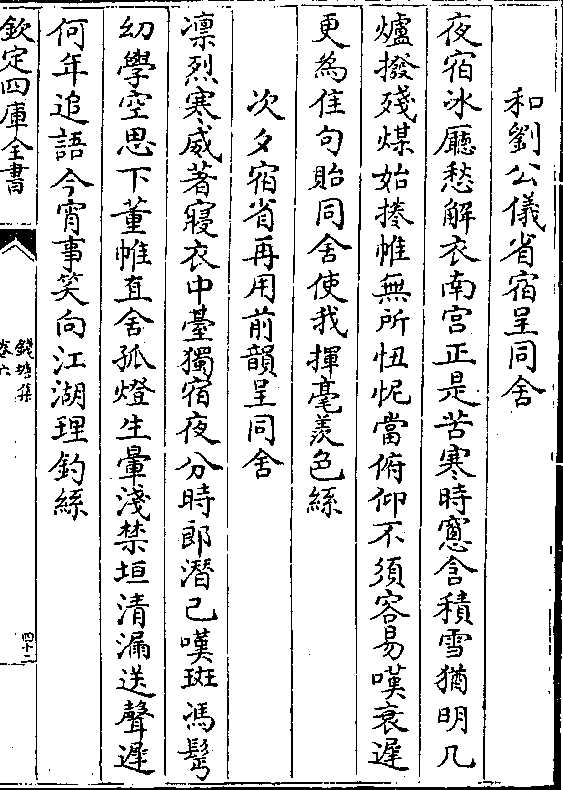 和劉公儀省宿呈同舍
夜宿冰廳愁解衣南宮正是苦寒時窻含積雪猶明几
爐撥殘煤始捲帷無所忸怩當俯仰不須容易嘆衰遲
更為佳句貽同舍使我揮毫羡色絲
次夕宿省再用前韻呈同舍
凛烈寒威著寢衣中臺獨宿夜分時郎潛已嘆斑馮鬢
幼學空思下董帷直舍孤燈生暈淺禁垣清漏送聲遲
何年追語今宵事笑向江湖理釣絲
欽定四庫全書
錢塘集
卷六
四十二